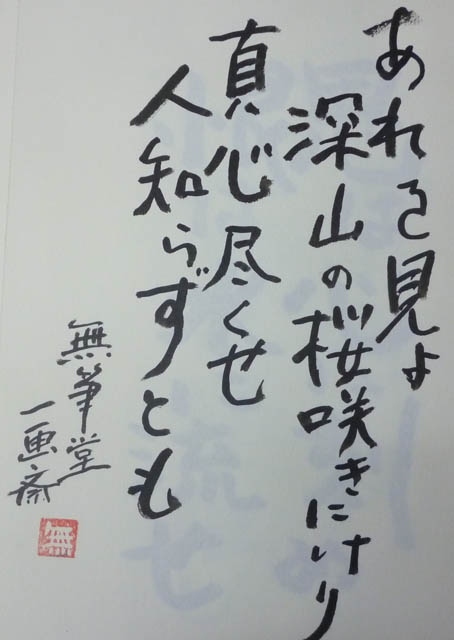 あれを見よ
深山の桜咲きにけり
真心尽くせ
人知らずとも
無筆堂
一画斎
無